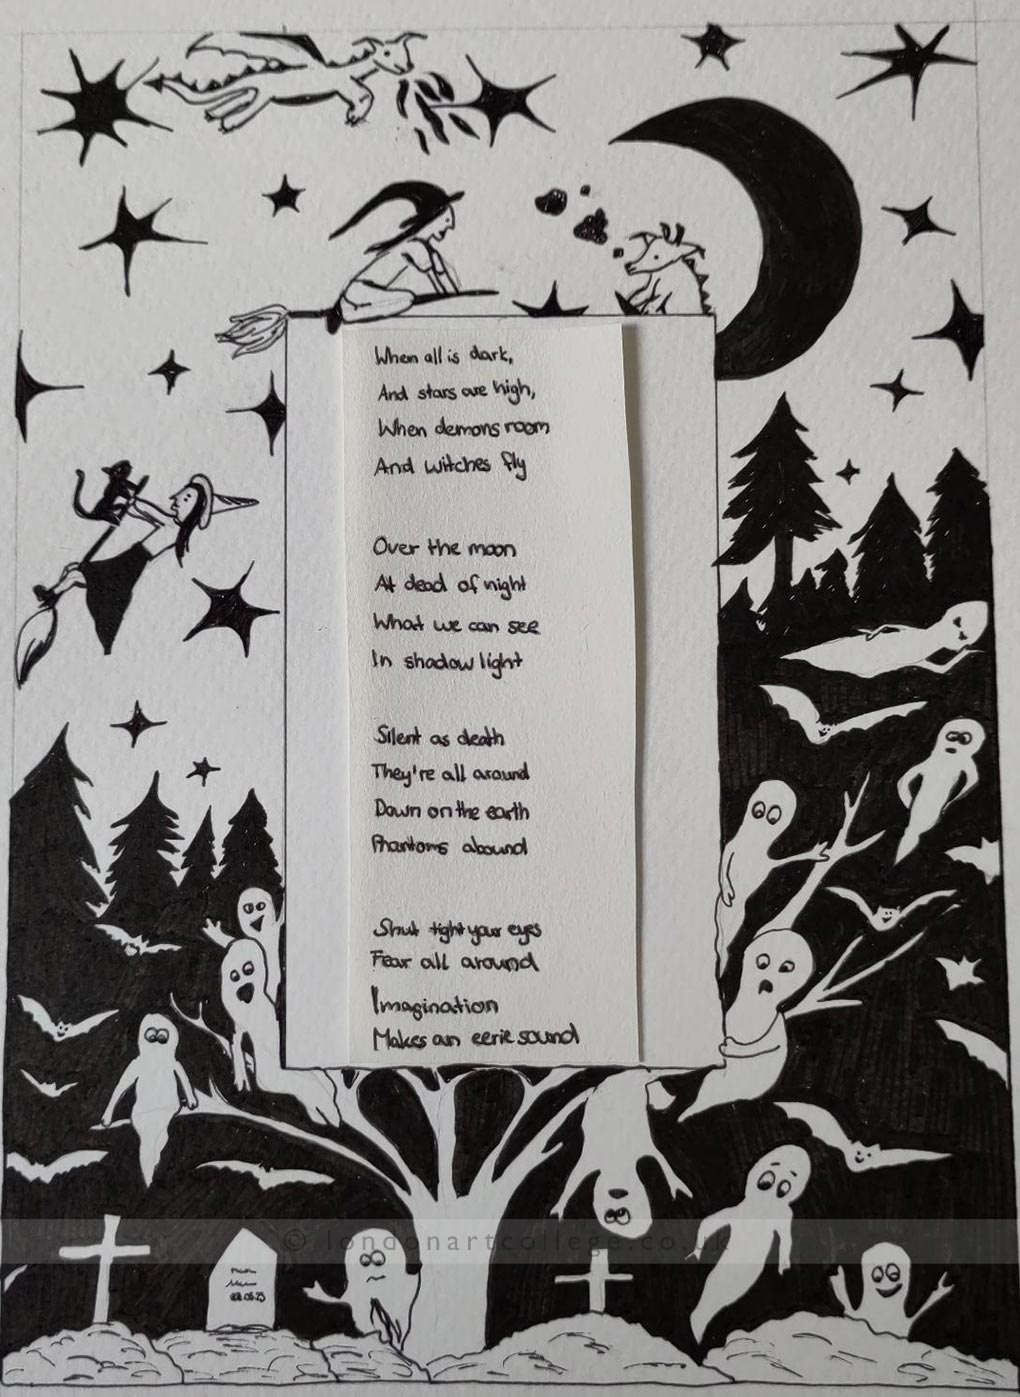 When all is dark,
And stars are high,
When demons room
And witches fly
Over the moon
At dead of night
What we can see
In shadow light
Silent as death
They're all around
Down on the earth
Phantoms abound
Shut tight your eyes
Fear all around
Imagination
Makes an eerie sound
© londonartcollege.co.uk